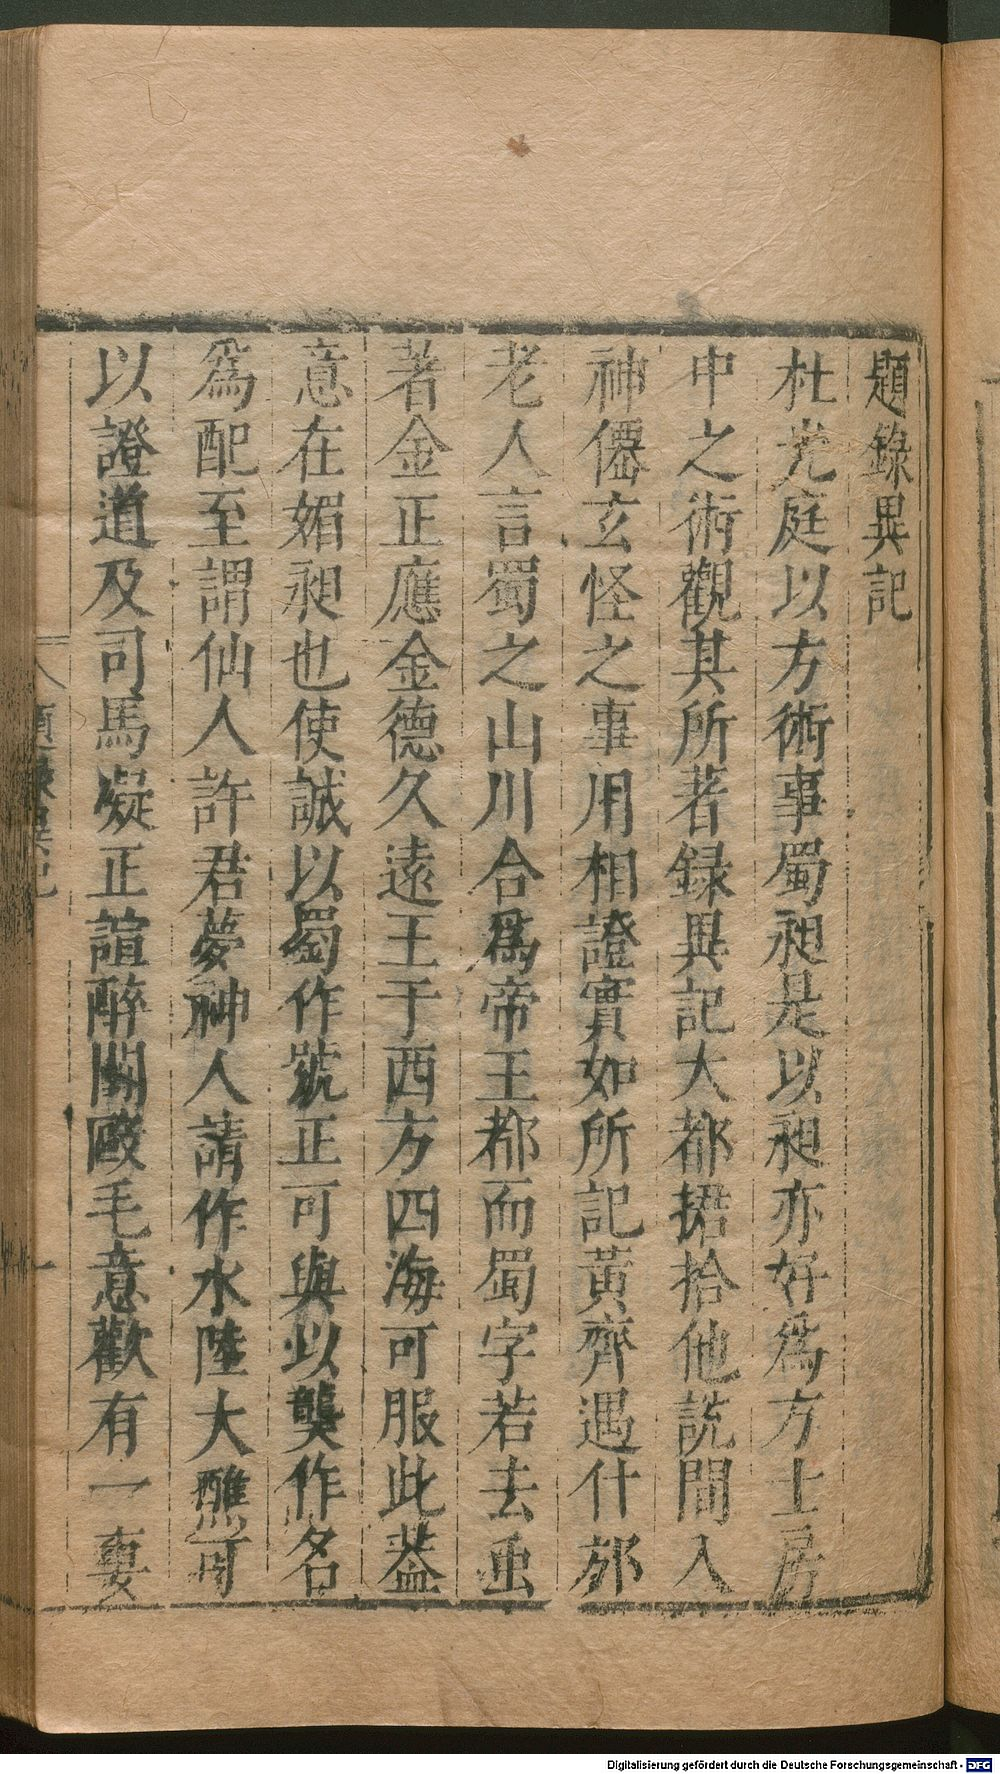 題錄異記
杜光庭以方術事蜀昶是以昶亦好為方士房
中之術觀其所著録異記大都捃拾他説間入
神僊玄怪之事用相證實如所記黃齊遇什邡
老人言蜀之山川合為帝王都而蜀字若去虫
著金正應金德久遠王于西方四海可服此葢
意在媚昶也使誠以蜀作號正可與以龔作名
為配至謂仙人許君夢神人請作水陸大醮可
以證道及司馬凝正誼醉鬭毆毛意歡有一妻
題錄異記
一
Digitalisierung gefördert durch die Deutsche Forschungsgemeinschaft - DFG